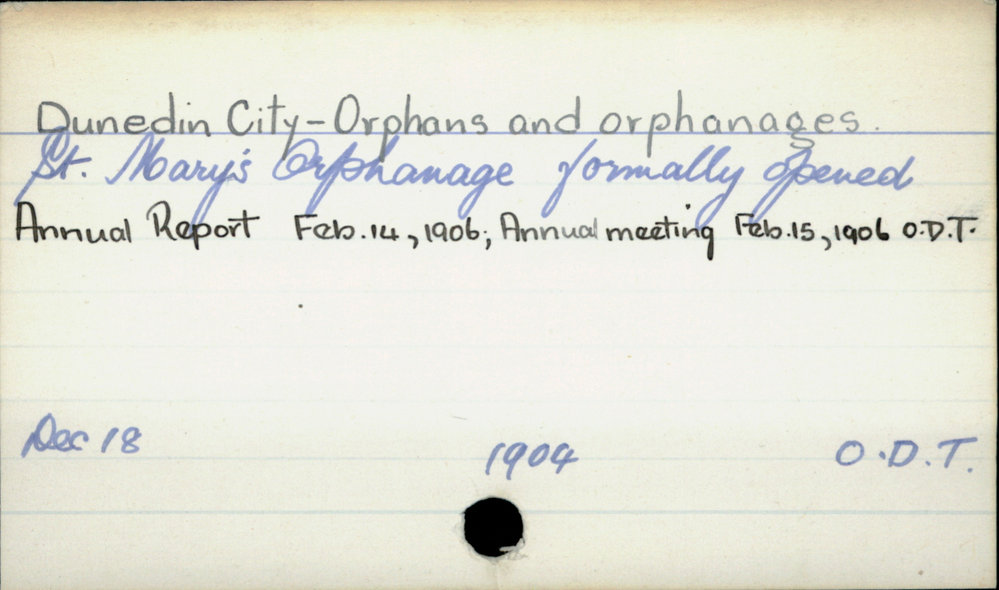 Dunedin City-Orphans and orphanages.
St. Mary's Orphanage formally opened
Annual Report Feb. 14, 1906; Annual meeting Feb. 15, 1906 O.D.T.
Dec 18 1904 O.D.T.